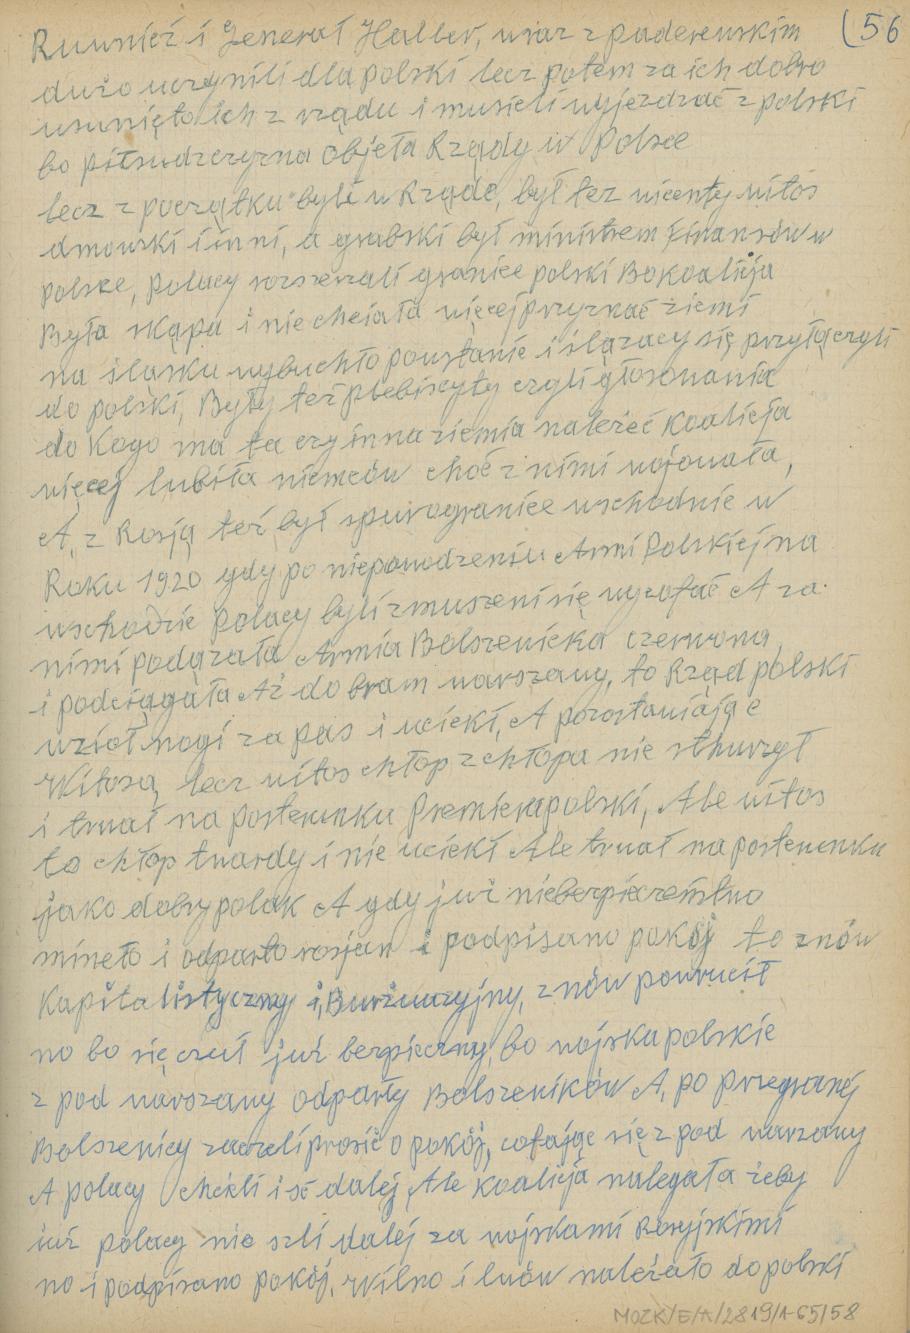 (56
Ruwnież i Jenerał Haller, wraz z paderewskim
dużo uczynili dla polski lecz potem za ich dobro
usunięto ich z rządu i musieli wyjezdzać z polski
bo piłsudzczyzna objeła Rządy w Polsce
lecz z początku byli w Rządе, był też wicenty witos
dmowski i inni, a grabski był ministrem Finansów w
polsce, polacy rozszezali granice polski Bo koalicja
Była skąpa i nie chciała więcej przyznać ziemi
na śląsku wybuchło powstanie i ślązacy się przyłączyli
do polski, Były też plebiscyty czyli głosowania
do Kogo ma ta czy inna ziemia należeć Koalicja
więcej lubiła niemców choć z nimi wojowała,
A, z Rosją też był spur o granice wschodnie w
Roku 1920 gdy po niepowodzeniu Armi Polskiej na
wschodzie polacy byli zmuszeni się wycofać A za
nimi podązała Armia Bolszewicka czerwona,
i podciągała Aż do bram warszawy, to Rząd polski
wzioł nogi za pas i uciekł, A pozostawiając
Witosa, lecz witos chłop z chłopa nie sthurzył
i trwał na posterunku Premiera polski, Ale witos
to chłop twardy i nie uciekł Ale trwał na posterunku
jako dobry polak A gdy już niebezpieczeństwo
mineło i odparto rosjan i podpisano pokój to znów
Kapitalistyczny i, Burżuazyjny, znów powrucił
no bo się czuł już bezpieczny, bo wojska polskie
z pod warszawy odparły Bolszewików A, po przegranéj
Bolszewicy zaczeli prosić o pokój, cofając się z pod warzawy
A polacy chcieli iść dalej Ale koalicja nalegała żeby
już polacy nie szli daléj za wojskami Rosyjskimi
no i podpisano pokój, Wilno i lwów należało do polski
MOZK/E/A/2819/1-65/58